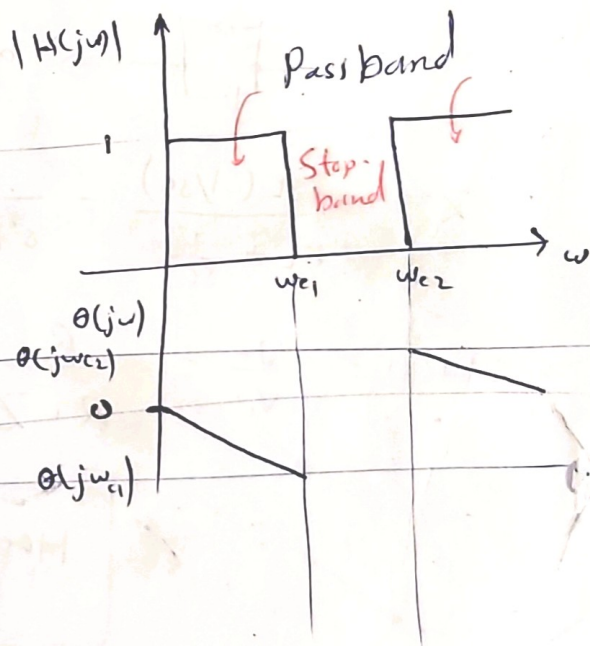 |H(jω)|
Passband
1
Stop-
band
ω
ωc1
ωc2
θ(jω)
θ(jωc2)
0
θ(jωc1)